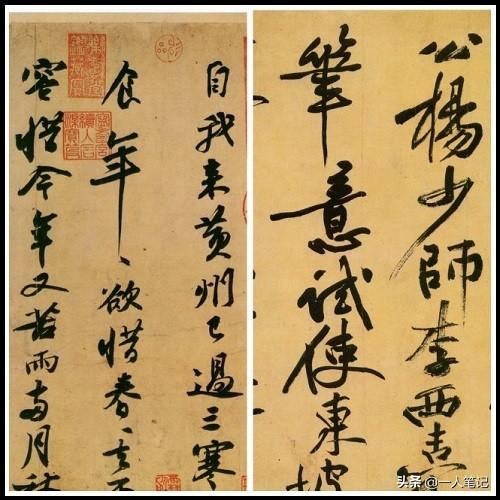 自我来黄州已過三寒
食年〻欲惜春〻去不
容惜今年又苦雨兩月秋
公楊少師李西臺
筆意試使東坡
头条 @一人笔记